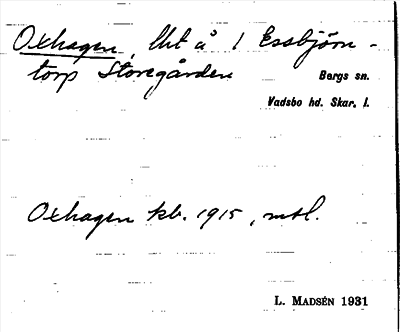 Oxhagen, lht å 1 Essbjörn-
torp Storegården
Bergs sn.
Vadsbo hd. Skar. l.
Oxhagen kb. 1915, mtl.
L. MADSÉN 1931